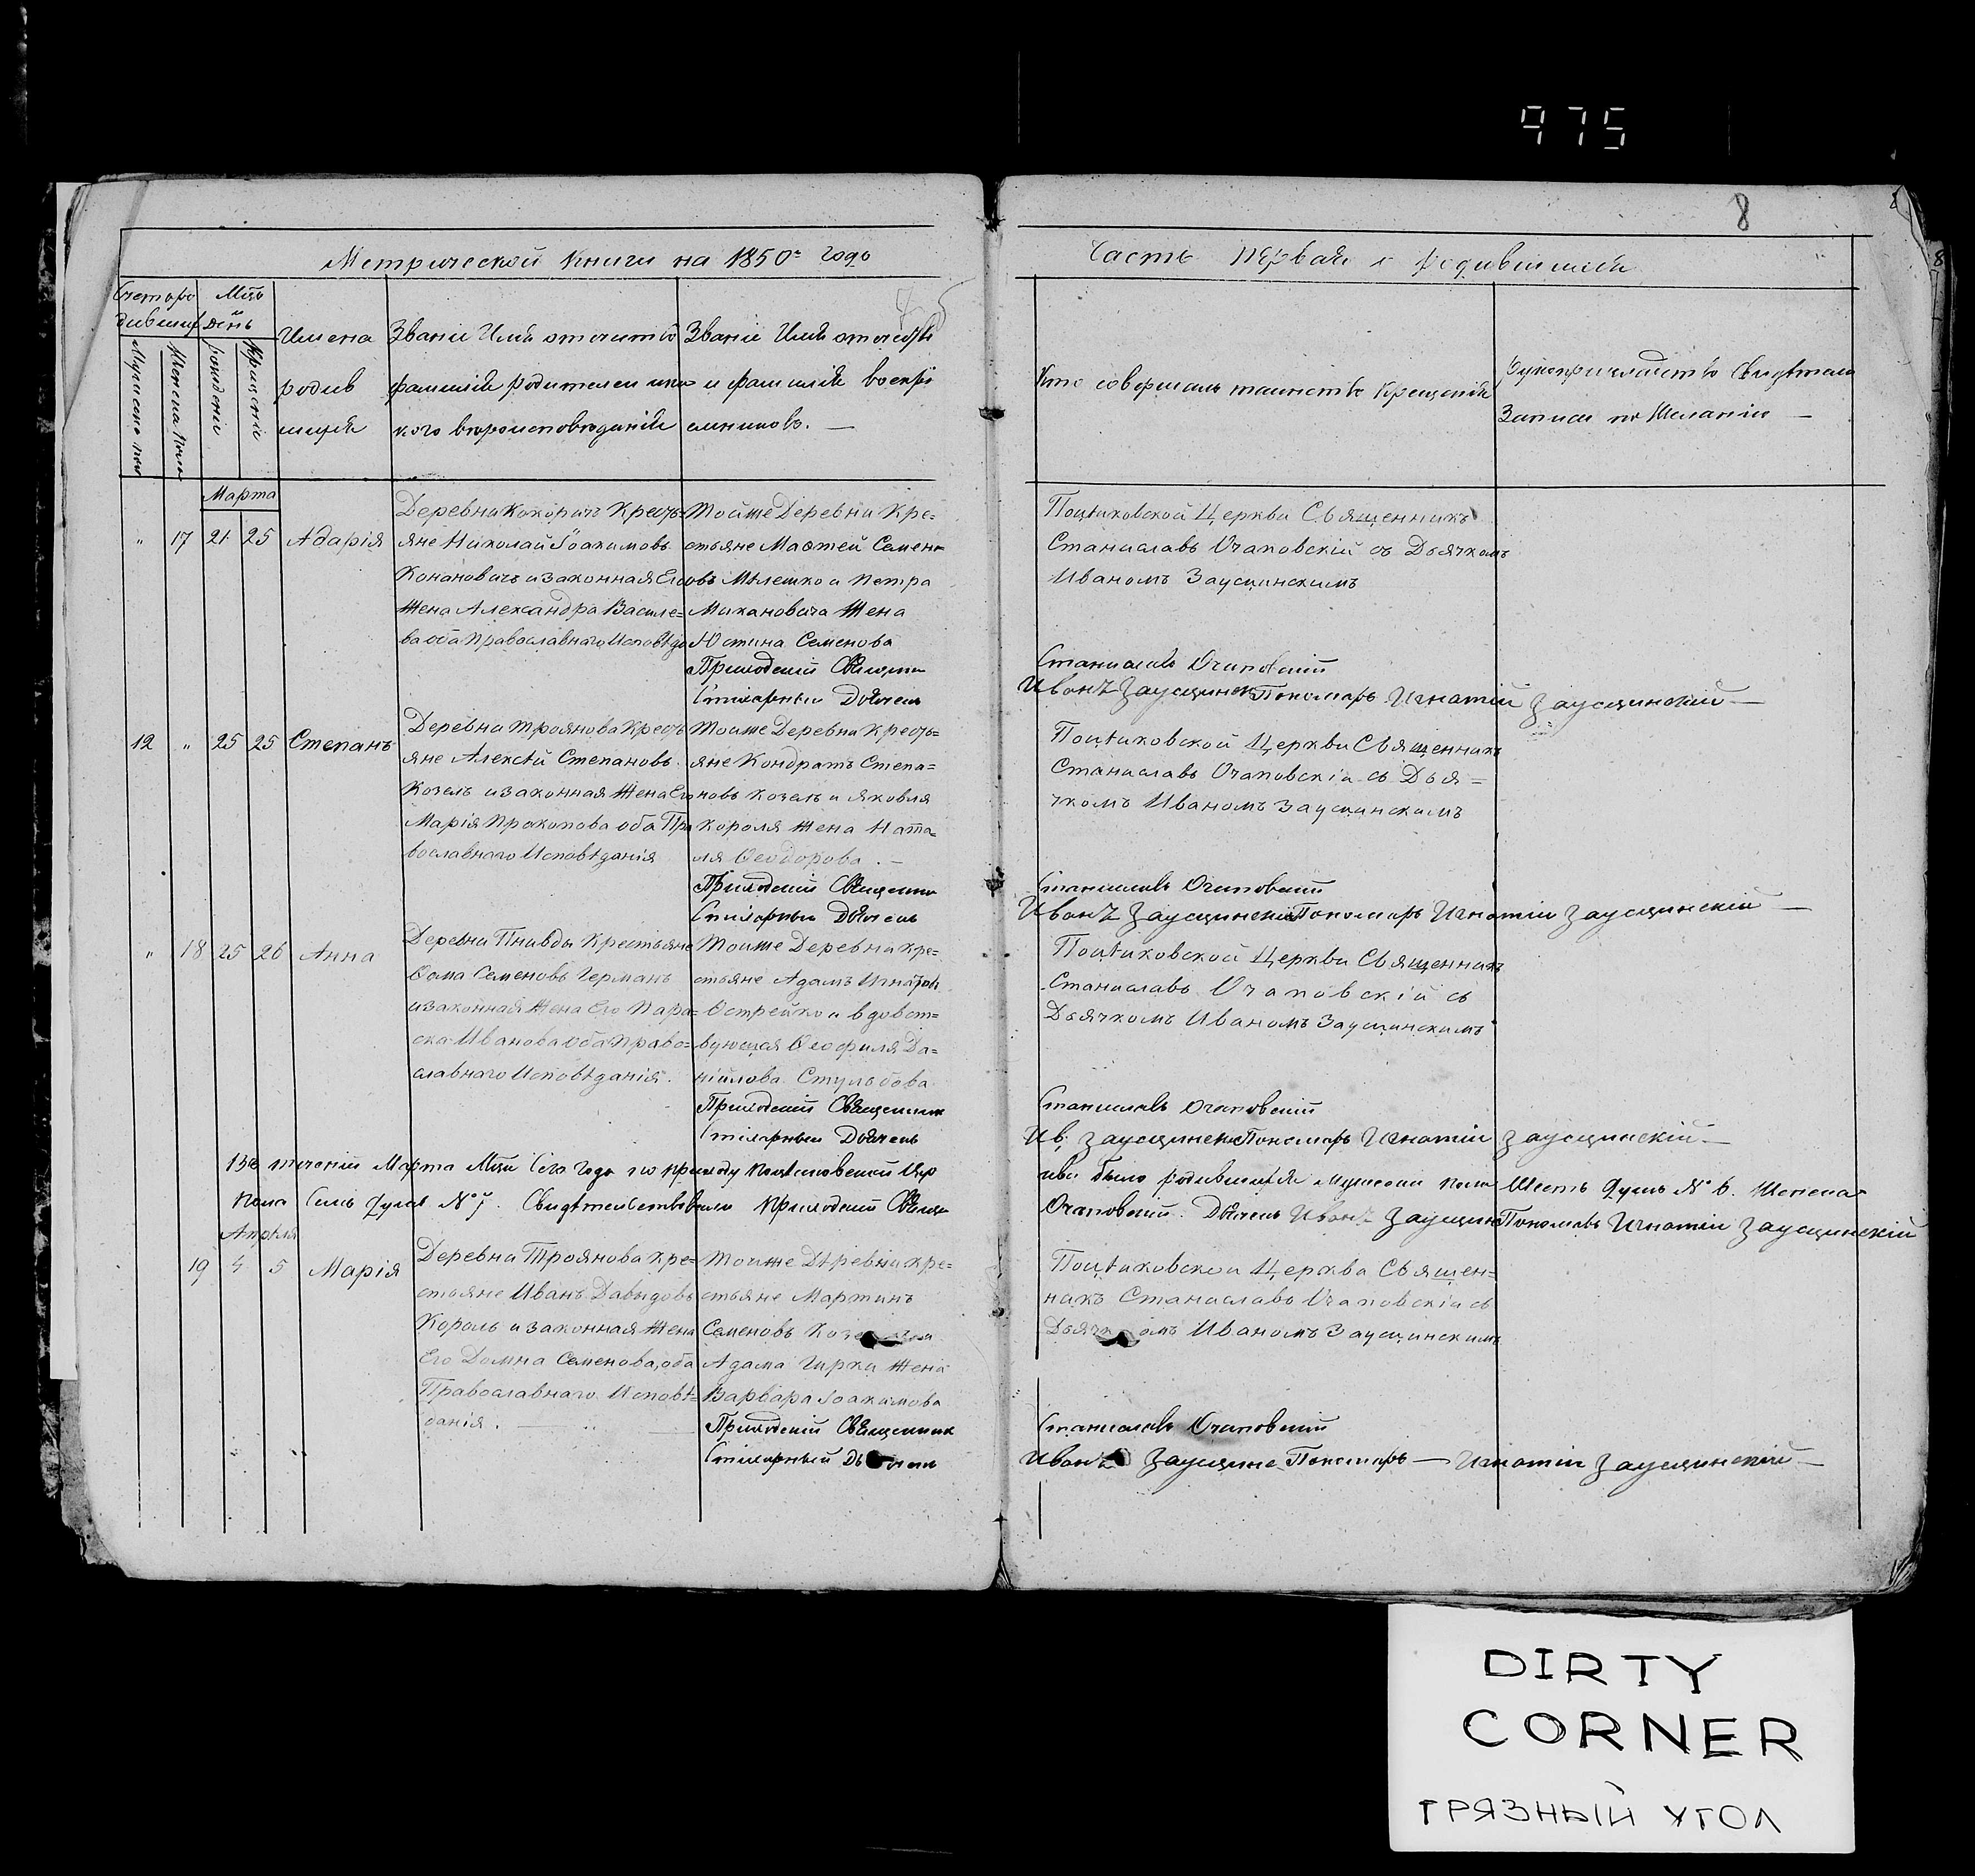 975
8
Метрической Книги на 1850й годъ
Часть Первая о родившихся
Счетъ ро
дившихся
Мѣць
День
Мужеска пола
Женска пола
рожденія
крещенія
Имена
родив
шихся
Званіе Имя отчество
фамилія родителей и ка
кого вѣроисповѣданія
Званіе Имя отчество
и фамилія воспрі
емниковъ. —
Кто совершалъ таинство крещенія
Рукоприкладство Свидѣтелей
Записи по Желанію —
Марта
" 17 21 25 Адарія
Деревни Кокоричъ Кресть=
яне Николай Іоакимовъ
Конановичъ и законная Его
Жена Александра Василе=
ва оба Православнаго Исповѣда
Тойже Деревни Кре=
стьяне Матѳей Семен
овъ Мѣлешко и Петра
Михановича Жена
Юстина Семенова
Приходскій Священник
Стихарный Дьячекъ
Поцѣиховской Церкви Священникъ
Станиславъ Очаповскій съ Дьячкомъ
Иваномъ Заусцинскимъ
Станиславъ Очаповскій
Иванъ Заусцинск Пономарь Игнатій Заусцинскій —
12 " 25 25 Степанъ
Деревни Троянова Кресть
яне Алексѣй Степановъ
Козелъ и законная Жена Его
Марія Прокопова оба Пра
вославнаго Исповѣданія
Тойже Деревни Кресть=
яне Кондратъ Степа=
новъ Козелъ и Яковля
Короля Жена Ната=
ля Ѳеодорова. —
Приходскій Священник
Стихарный Дьячекъ
Поцѣиховской Церкви Священникъ
Станиславъ Очаповскій съ Дья=
чкомъ Иваномъ Заусцинскимъ
Станиславъ Очаповскій
Иванъ Заусцинскій Пономарь Игнатій Заусцинскій —
" 18 25 26 Анна
Деревни Пнивды Крестьяне
Ѳома Семеновъ Германъ
и законная Жена Его Пара=
ска Иванова оба Право=
славнаго Исповѣданія.
Тойже Деревни Кре=
стьяне Адамъ Игнатов
Острейко и вдовст=
вующая Ѳеофиля Да=
ніилова Стульбова
Приходскій Священник
Стихарный Дьячекъ
Поцѣиховской Церкви Священникъ
Станиславъ Очаповскій съ
Дьячкомъ Иваномъ Заусцинскимъ
Станиславъ Очаповскій
Ив. Заусцинскій Пономарь Игнатій Заусцинскій —
Въ теченіи Марта Мѣца Сего года по приходу Поцѣиховской Цер
кви было родившихся мужеска пола Шесть душъ № 6. Женска
пола Семь душъ № 7. Свидѣтельствовали Приходскій Священ
Очаповскій. Дьячекъ Иванъ Заусцин Пономарь Игнатій Заусцинскій
Апрѣля
19 4 5 Марія
Деревни Троянова Кре=
стьяне Иванъ Давыдовъ
Король и законная Жена
Его Домна Семенова, оба
Православнаго Исповѣ=
данія.
Тойже Деревни Кре=
стьяне Мартинъ
Семеновъ
Адама Гирки Жена
Варвара Іоакимова
Приходскій Священник
Стихарный Дьячекъ
Поцѣиховской Церкви Священ=
никъ Станиславъ Очаповскій съ
Дьячкомъ Иваномъ Заусцинскимъ
Станиславъ Очаповскій
Иванъ Заусцинс Пономарь — Игнатій Заусцинскій —
DIRTY
CORNER
ГРЯЗНЫЙ УГОЛ